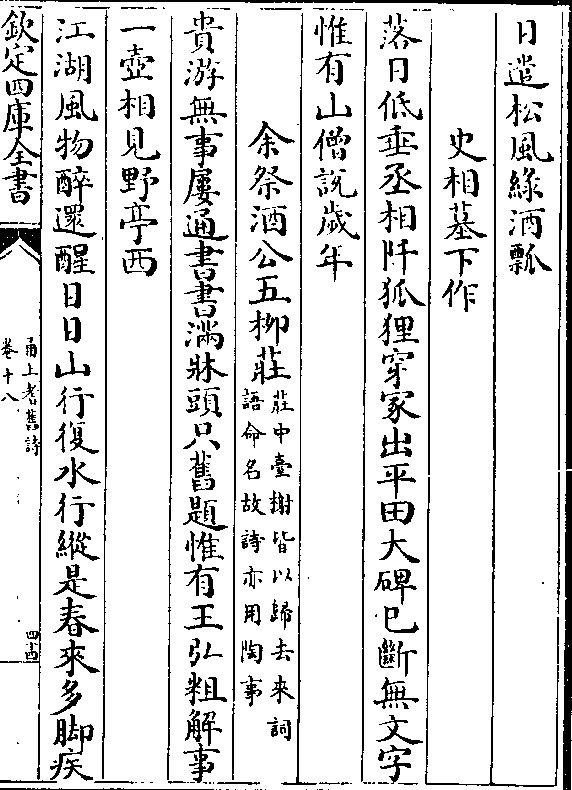 日遣松風緑酒瓢
史相墓下作
落日低垂丞相阡狐狸穿冢出平田大碑已斷無文字
惟有山僧說歲年
余祭酒公五柳莊莊中臺榭皆以歸去來詞
語命名故詩亦用陶事
貴游無事屢通書書滿牀頭只舊題惟有王弘粗解事
一壺相見野亭西
江湖風物醉還醒日日山行復水行縱是春來多脚疾
欽定四庫全書
甬上耆舊詩
卷十八
四十四